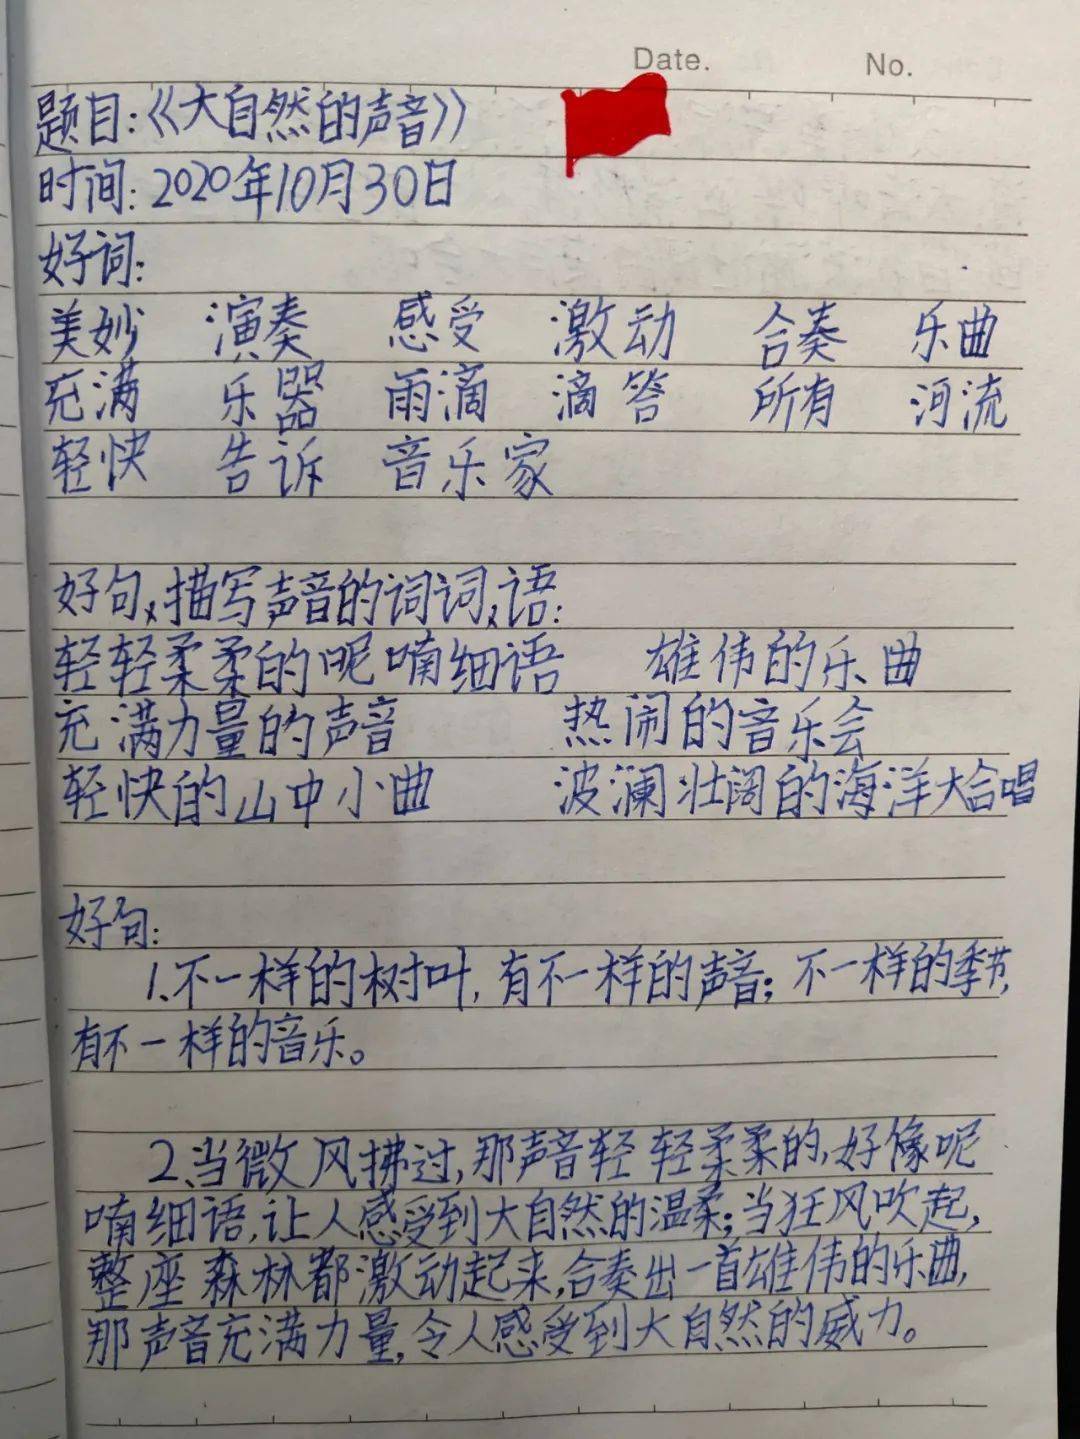 Date.
No.
题目:《大自然的声音》
时间: 2020年10月30日
好词:
美妙 演奏 感受 激动 合奏 乐曲
充满 乐器 雨滴 滴答 所有 河流
轻快 告诉 音乐家
好句、描写声音的词词、语:
轻轻柔柔的呢喃细语 雄伟的乐曲
充满力量的声音 热闹的音乐会
轻快的山中小曲 波澜壮阔的海洋大合唱
好句:
1、不一样的树叶,有不一样的声音;不一样的季节,
有不一样的音乐。
2、当微风拂过,那声音轻轻柔柔的,好像呢
喃细语,让人感受到大自然的温柔;当狂风吹起,
整座森林都激动起来,合奏出一首雄伟的乐曲,
那声音充满力量,令人感受到大自然的威力。